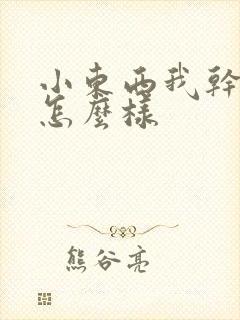 小東西我幹
怎麼樣
熊谷亮